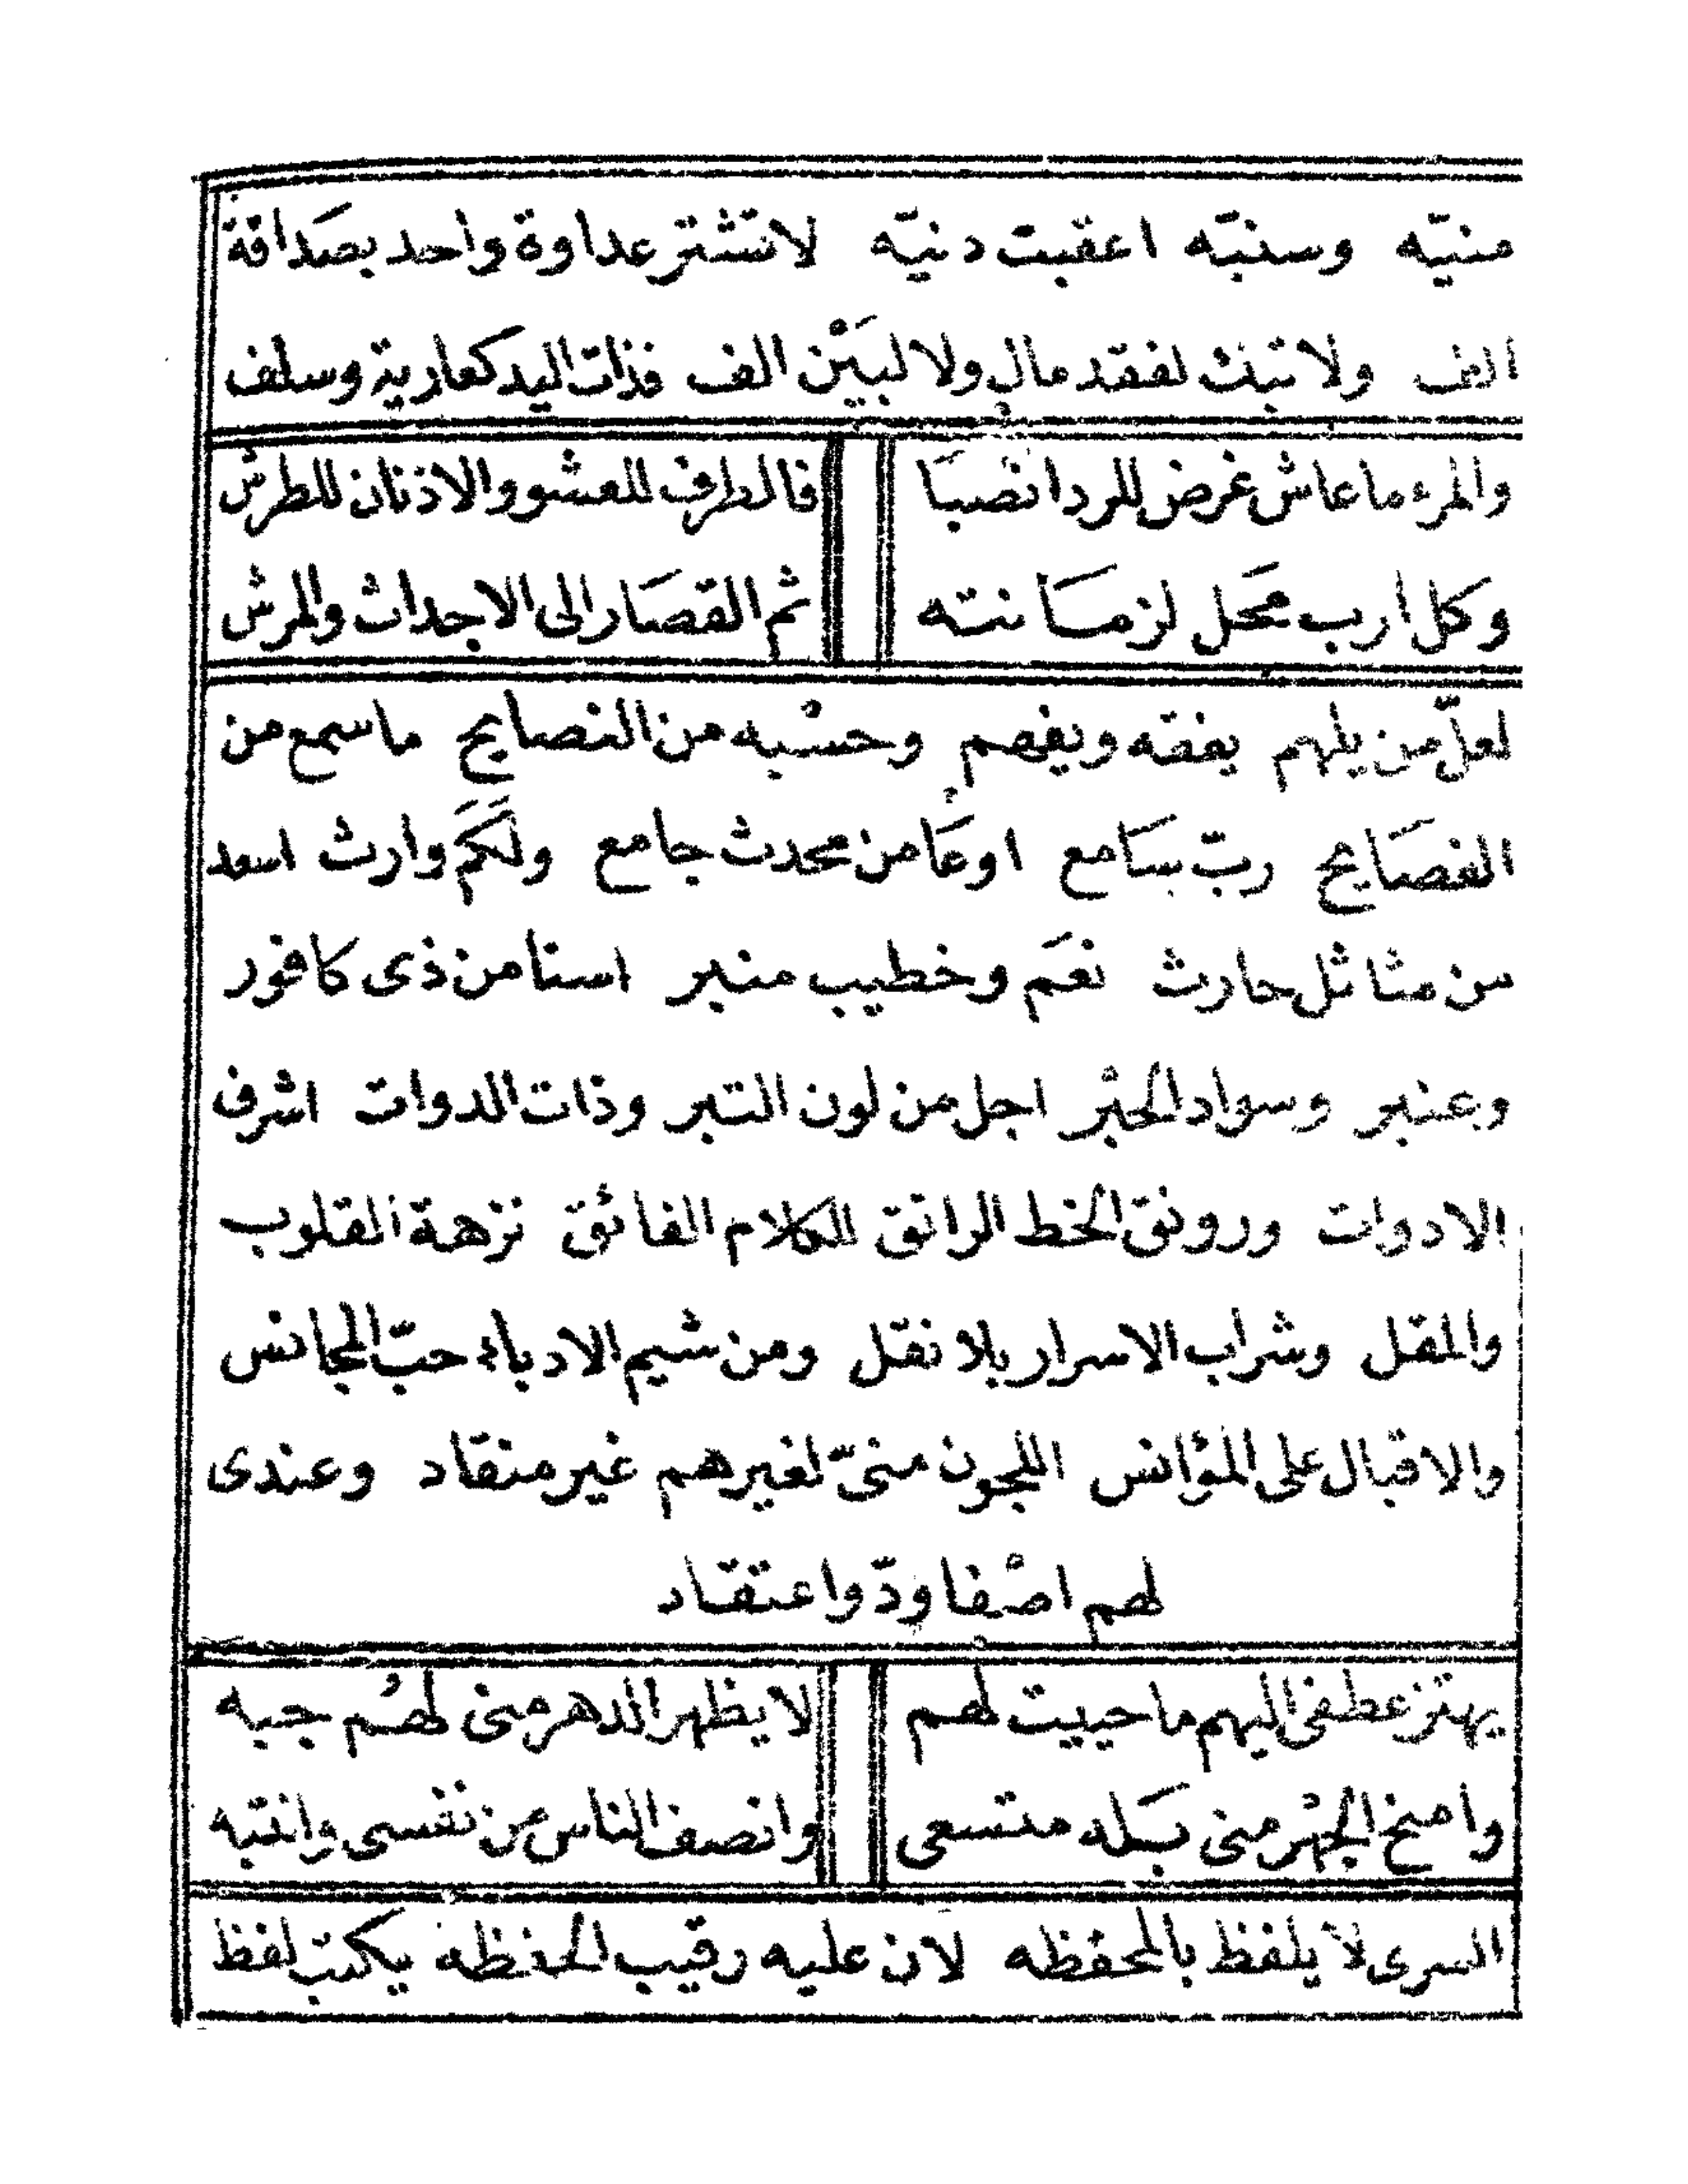 منيّه وسنيّه اعقبت دنيّه لا تشتر عداوة واحد بصَداقة
الف ولا تبك لفقد مالٍ ولا لبَيْن الف فذات اليد كعارية وسلف
والمرء ما عاش غرض للردا نصبَا فالطرف للعشو والاذنان للطرش
وكل أرب محَل لزمَانته ثم القصَار الى الاجداث والمرش
لعلّ من يلهم يفقه ويفهم وحسْبه من النصايح ما سمع من
الفصَايح ربّ سَامع اوعَا من محدث جامع ولَكَم وارث اسعد
من مثاثل حارث نعَم وخطيب منبر اسنا من ذى كافور
وعنبر وسواد الحبْر اجل من لون التبر وذات الدوات اشرف
الادوات ورونق الخط الرائق للكلام الفائق نزهة القلوب
والمقل وشراب الاسرار بلا نقل ومن شيم الادباء حبّ المجانس
والاقبال على المؤانس اللجون منىّ لغيرهم غير منقاد وعندى
لهم اصْفا ودّ واعتقاد
يهتز عطفى اليهم ما حييت لهم لا يظهر الدهر منى لهُم جبه
وامنح الجهْر منى بَله متسعى وانصف الناس من نفسى وانتبه
السرى لا يلفظ بالمحفظه لان عليه رقيب الحفظه يكتب لفظ